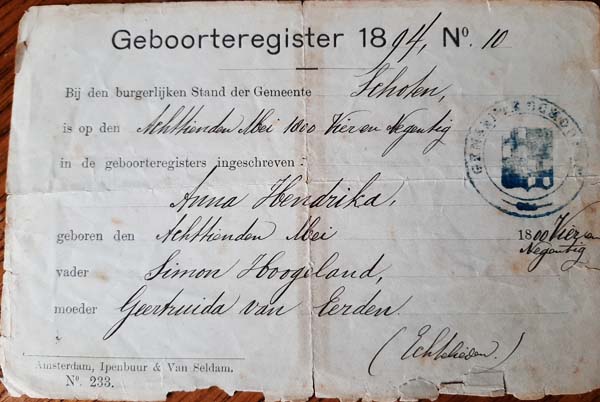 Geboorteregister 1894, No. 10
Bij den burgerlijken Stand der Gemeente Schoten,
is op den Achttienden Mei 1800 Vier en Negentig
in de geboorteregisters ingeschreven:
Anna Hendrika,
geboren den Achttienden Mei 1800 Vier en
Negentig
vader Simon Hoogeland,
moeder Geertruida van Eerden.
(Echtelieden.)
Amsterdam, Ipenbuur & Van Seldam.
No. 233.